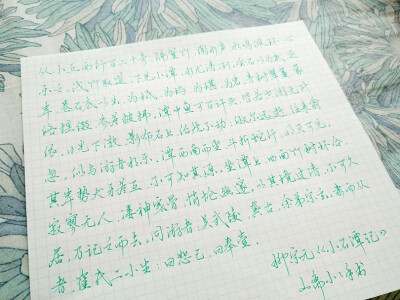 从小丘西行百二十步，隔篁竹，闻水声，如鸣佩环，心
乐之。伐竹取道，下见小潭，水尤清冽。全石以为底，近
岸，卷石底以出，为坻，为屿，为嵁，为岩。青树翠蔓，蒙
络摇缀，参差披拂。潭中鱼可百许头，皆若空游无所
依，日光下澈，影布石上。佁然不动，俶尔远逝，往来翕
忽，似与游者相乐。潭西南而望，斗折蛇行，明灭可见。
其岸势犬牙差互，不可知其源。坐潭上，四面竹树环合，
寂寥无人，凄神寒骨，悄怆幽邃。以其境过清，不可久
居，乃记之而去。同游者：吴武陵，龚古，余弟宗玄。隶而从
者，崔氏二小生：曰恕己，曰奉壹。
柳宗元《小石潭记》